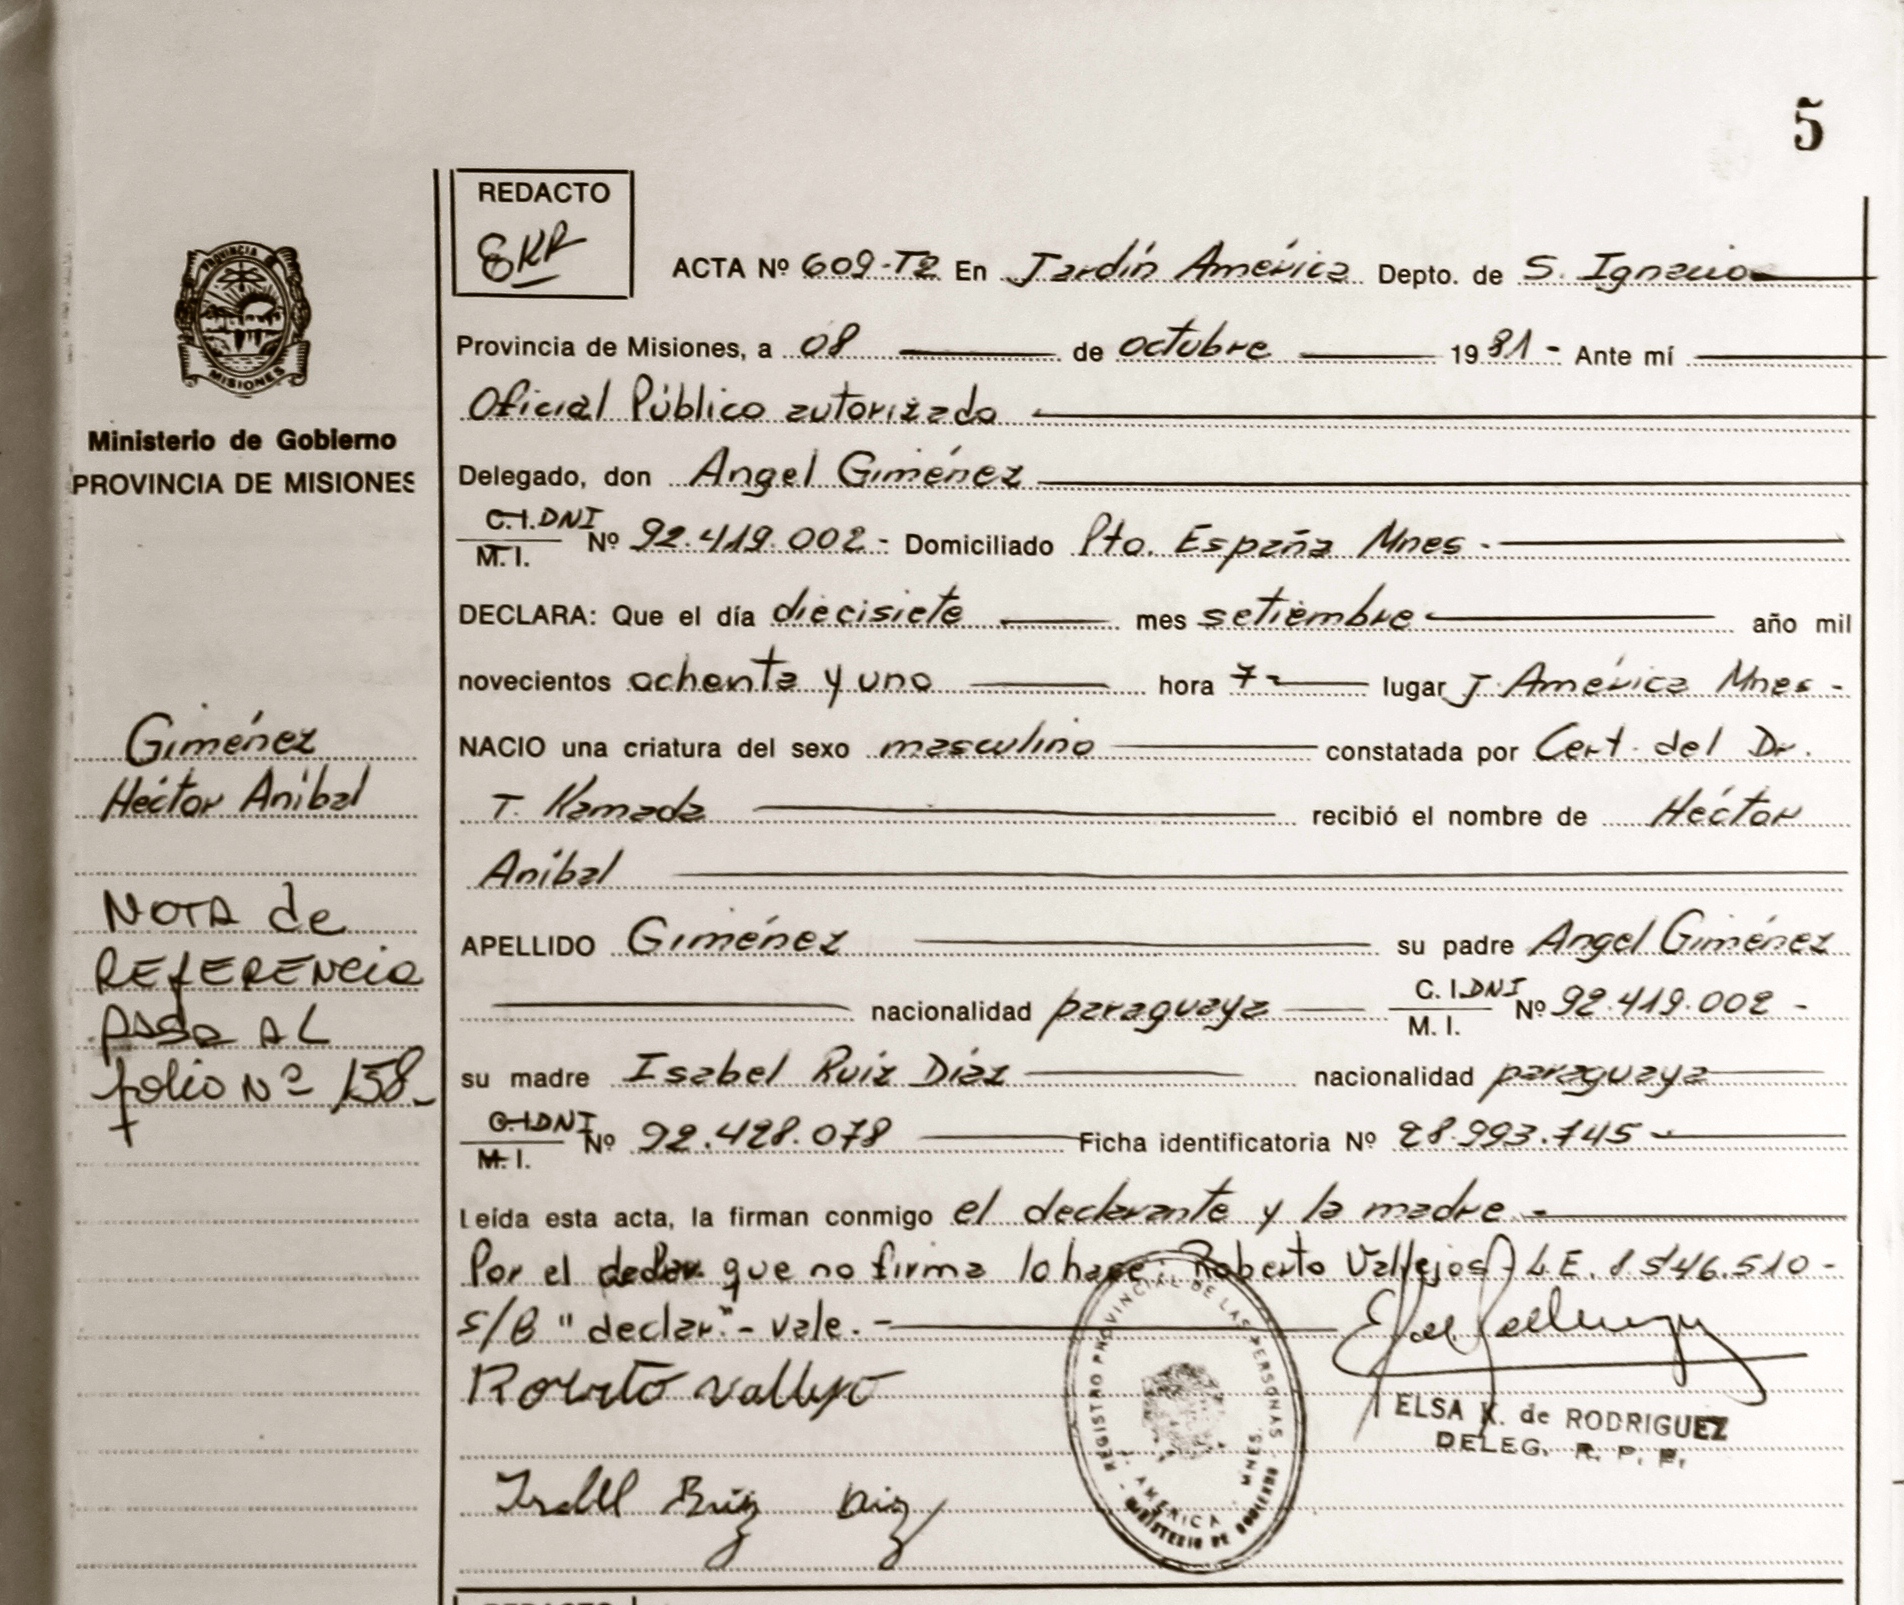 5
REDACTO
ACTA Nº 609-T2 En Jardín América Depto. de S. Ignacio
Provincia de Misiones, a 08 de octubre 1981 - Ante mí
Oficial Público autorizado
Delegado, don Angel Giménez
C.I. DNI Nº 92.419.002 - Domiciliado Pto. España Mnes -
M. I.
DECLARA: Que el día diecisiete mes setiembre año mil
novecientos ochenta y uno hora 7 - lugar J. América Mnes -
NACIO una criatura del sexo masculino constatada por Cert. del Dr.
T. Kamada recibió el nombre de Héctor
Aníbal
APELLIDO Giménez su padre Angel Giménez
nacionalidad paraguaya C. I. DNI Nº 92.419.002 -
M. I.
su madre Isabel Ruiz Díaz nacionalidad paraguaya
C.I. DNI Nº 92.428.078 Ficha identificatoria Nº 28.993.745 -
M. I.
Leída esta acta, la firman conmigo el declarante y la madre. -
Por el declar. que no firma lo hace: Roberto Vallejos - L.E.
S/B "declar." - vale. -
Roberto Vallejo
ELSA K. de RODRIGUEZ
DELEG. R. P. P.
Isabel Ruiz Diaz
REGISTRO PROVINCIAL DE LAS PERSONAS
AMERICA - MNES.
MINISTERIO DE GOBIERNO
PROVINCIA DE
MISIONES
Ministerio de Gobierno
PROVINCIA DE MISIONES
Giménez
Héctor Aníbal
NOTA de
REfERENcia
PASA AL
folio Nº 158-
REDACTO